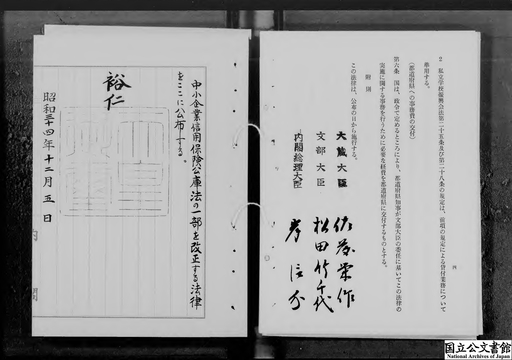 2　私立学校振興会法第二十五条及び第二十八条の規定は、前項の規定による貸付業務について
準用する。
（都道府県への事務費の交付）
第六条　国は、政令で定めるところにより、都道府県知事が文部大臣の委任に基いてこの法律の
実施に関する事務を行うために必要な経費を都道府県に交付するものとする。
附則
この法律は、公布の日から施行する。
大蔵大臣　佐藤栄作
文部大臣　松田竹千代
内閣総理大臣　岸信介
中小企業信用保険公庫法の一部を改正する法律
をここに公布する。
裕仁
昭和三十四年十二月五日
内閣
国立公文書館
National Archives of Japan